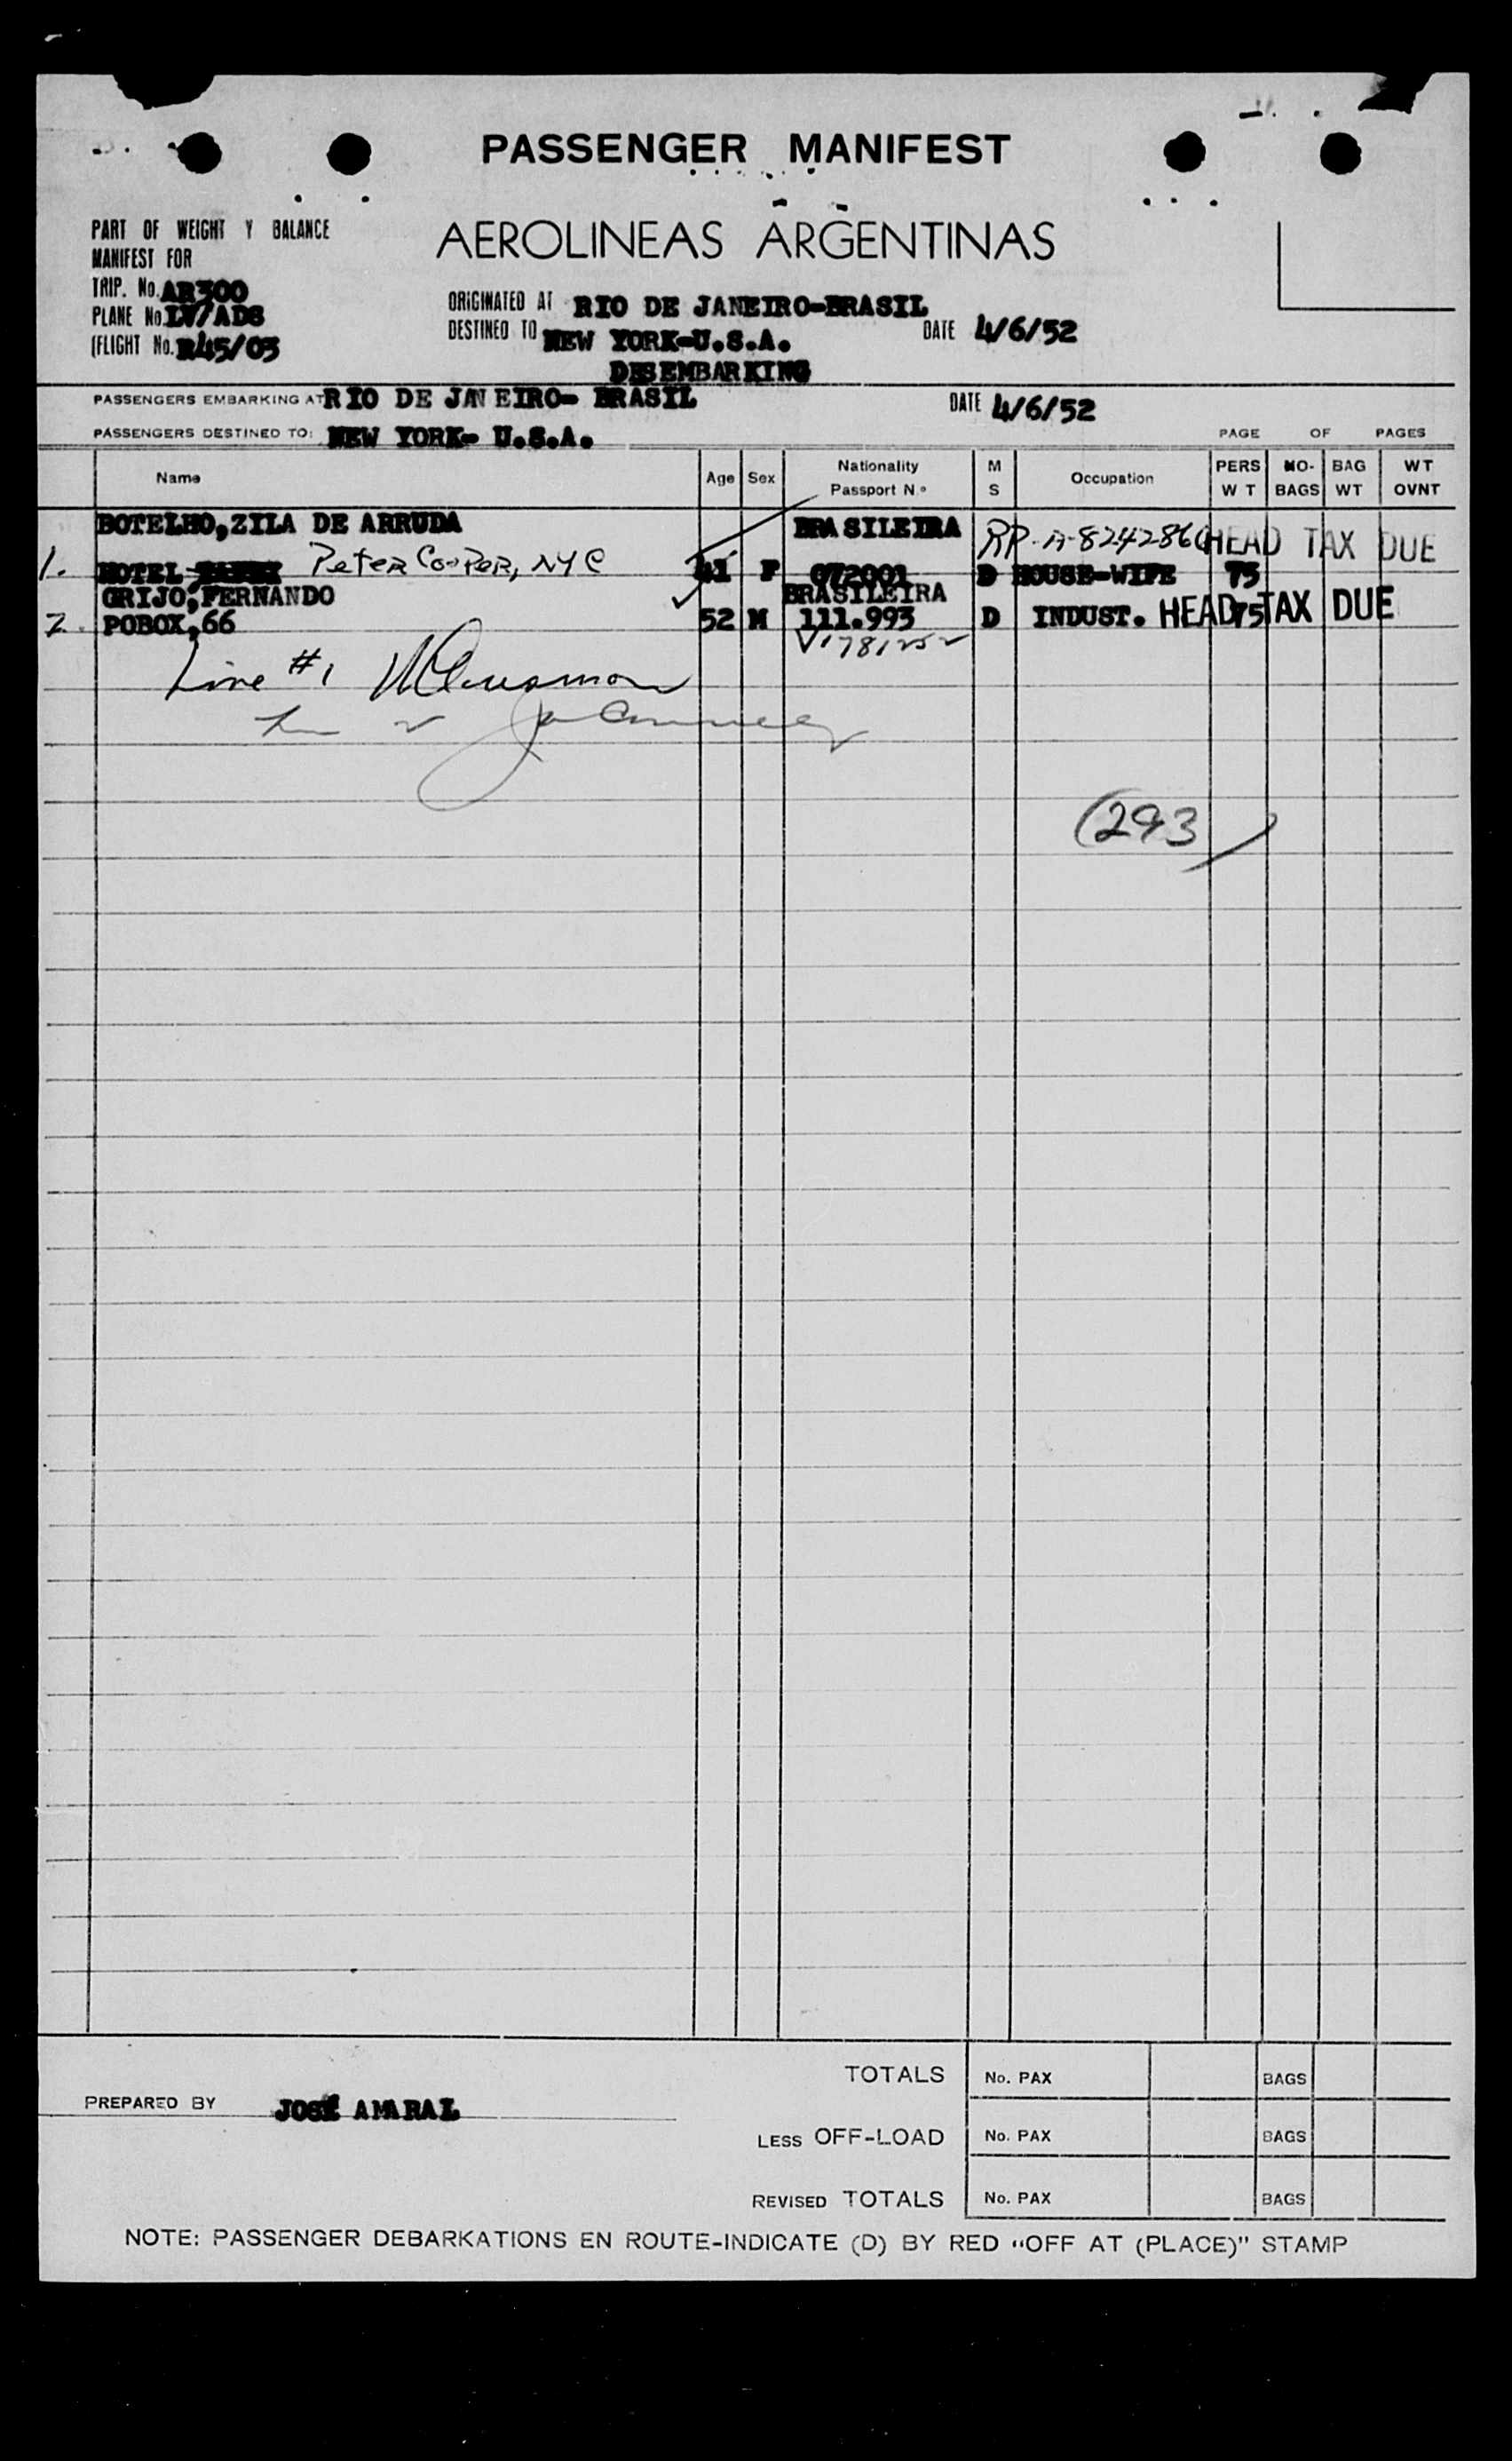 PASSENGER MANIFEST
AEROLINEAS ARGENTINAS
PART OF WEIGHT Y BALANCE
MANIFEST FOR
TRIP. No. AR300
PLANE No LV/ADS
(FLIGHT No. R45/03
ORIGINATED AT RIO DE JANEIRO-BRASIL
DESTINED TO NEW YORK-U.S.A. DATE 4/6/52
DESEMBARKING
PASSENGERS EMBARKING AT RIO DE JANEIRO- BRASIL DATE 4/6/52
PASSENGERS DESTINED TO: NEW YORK- U.S.A. PAGE OF PAGES
Name Age Sex Nationality Passport N.º M S Occupation PERS W T NO- BAGS BAG WT WT OVNT
BOTELHO,ZILA DE ARRUDA BRASILEIRA RP-A-8242860 HEAD TAX DUE
1. HOTEL Peter Cooper, NYC 41 F 072001 D HOUSE-WIFE 75
GRIJO,FERNANDO BRASILEIRA
2. POBOX,66 52 M 111.993 D INDUST. HEAD TAX DUE 75
V1781252
Line #1
(293)
TOTALS No. PAX BAGS
PREPARED BY JOSÉ AMARAL
LESS OFF-LOAD No. PAX BAGS
REVISED TOTALS No. PAX BAGS
NOTE: PASSENGER DEBARKATIONS EN ROUTE-INDICATE (D) BY RED "OFF AT (PLACE)" STAMP